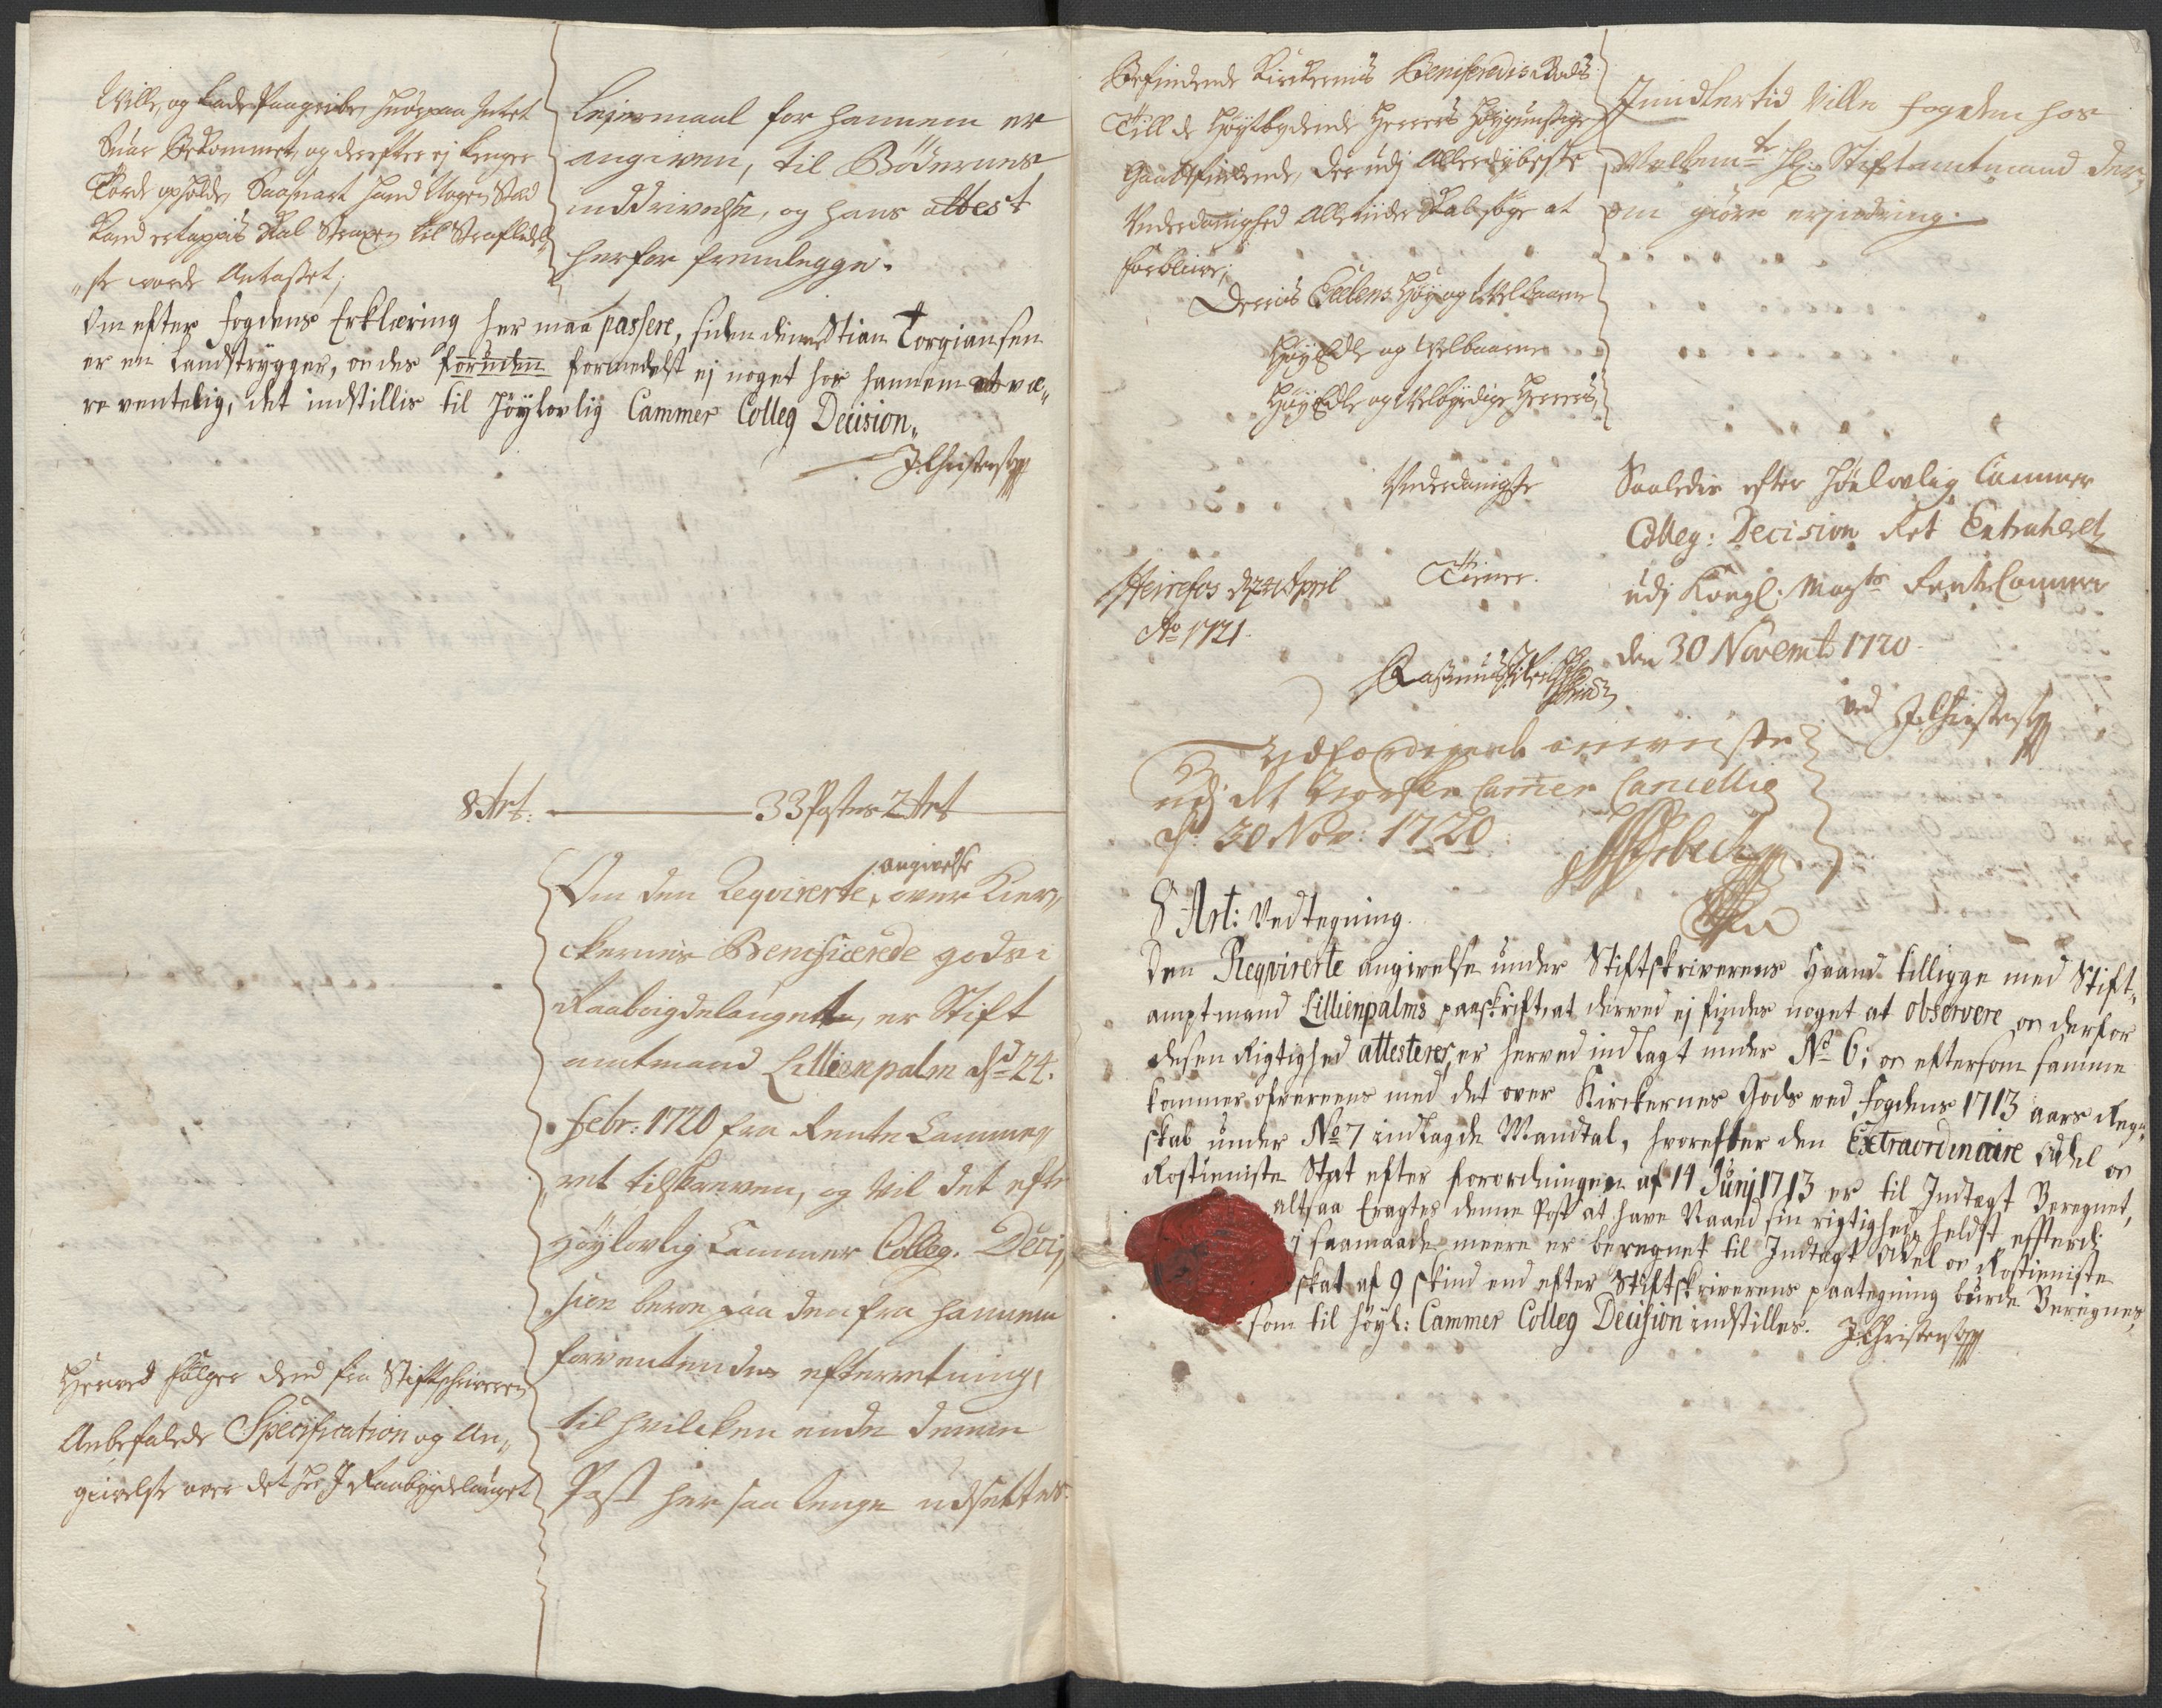 Ville, og lade Paagribe, huorpaa Intet
Suar Bekommet, og derefter ej lenger
Torde opholde, Saasnart hand Nogen Stæd
kand ertappis skal Straxen til Strafledel
"se worde Antastet;
Leiermaal for hannem er
angiven, til Bödernes
inddrivelse, og hans attest
herfor fremlegge.
Om efter Fogdens Erklæring her maa passere, siden denne Stian Torgiansen
er en Landstrygger, on des foruden formedelst ej noget hos hannem at væ„
re ventelig, det indstillis til Höylovlig Cammer Colleg Decision„
JChristensen
8 Art. 33 Postes 2 Art
Om den Reqvirerte angivelse over Kier„
ckernes Beneficerede gods i
Raabÿgdelaugett, er Stift
amtmand Lillienpalm d: 24.
Febr: 1720 fra Rente Camme„
ret tilskreven, og vil det efter
Höylovlig Cammer Colleg. Deci„
sion beroe paa den fra hannem
forventendes efterretning,
til hvilcken ende denne
Post her saa lenge udsettes.
Herved fölger dend fra Stiftschriveren
Anbefalede Specification og An„
givelse over det her J Raabygdelauget
Befindende Kirckernis Beneficerdis Gods
Till de Höytbydende Herrers Höygunstige
Gaatfindende, der udj Allerdybeste
Underdanighed Alletiide skal söge at
forblive,
Derris Excellens Höy og Welbaarne
HöyEdle og Welbaarne
HöyEdle og Velbyrdige Herrers,
Underdanigste
Tiener.
d 24 April
Ao 1721.
Rasmus
Jmidlertid Ville Fogden hos
Velbemte Hr. Stiftamtmand der„
om giöre erjndring.
Saaledis efter Höylovlig Cammer
Colleg: Decision Ret Extraheret
udj Kongl: Mayts RenteCammer
den 30 Novembr 1720.
ved JChristensen
Udferdiget
udj det Norske Camer Cancellie
d. 30 Nov: 1720.
8 Art: Vedtegning.
Den Reqvirerte angivelse under Stiftskriverens Haand tilligge med Stift„
amptmand Lillienpalms paaskrift, at derved ej findes noget at observere on derfor
desen Rigtighed attesterer, er herved indlagt under No 6; on eftersom samme
kommer ofvereens med det over Kirckernes Gods ved Fogdens 1713 aars Regn„
skab under No 7 indlagde Mandtal, hvorefter den Extraordinaire Odel on
Rostieniste Skat efter forordningen af 14 Junj 1713 er til Indtegt Beregnet,
altsaa Eragtes denne Post at have Naaed sin rigtighed, heldst effterdj
j saamaade meere er beregnet til Indtegt Odel on Rostieniste
skat af 9 skind end efter Stiftskriverens paategning burde Beregnes,
som til höyl: Cammer Colleg Decision indstilles. JChristensen